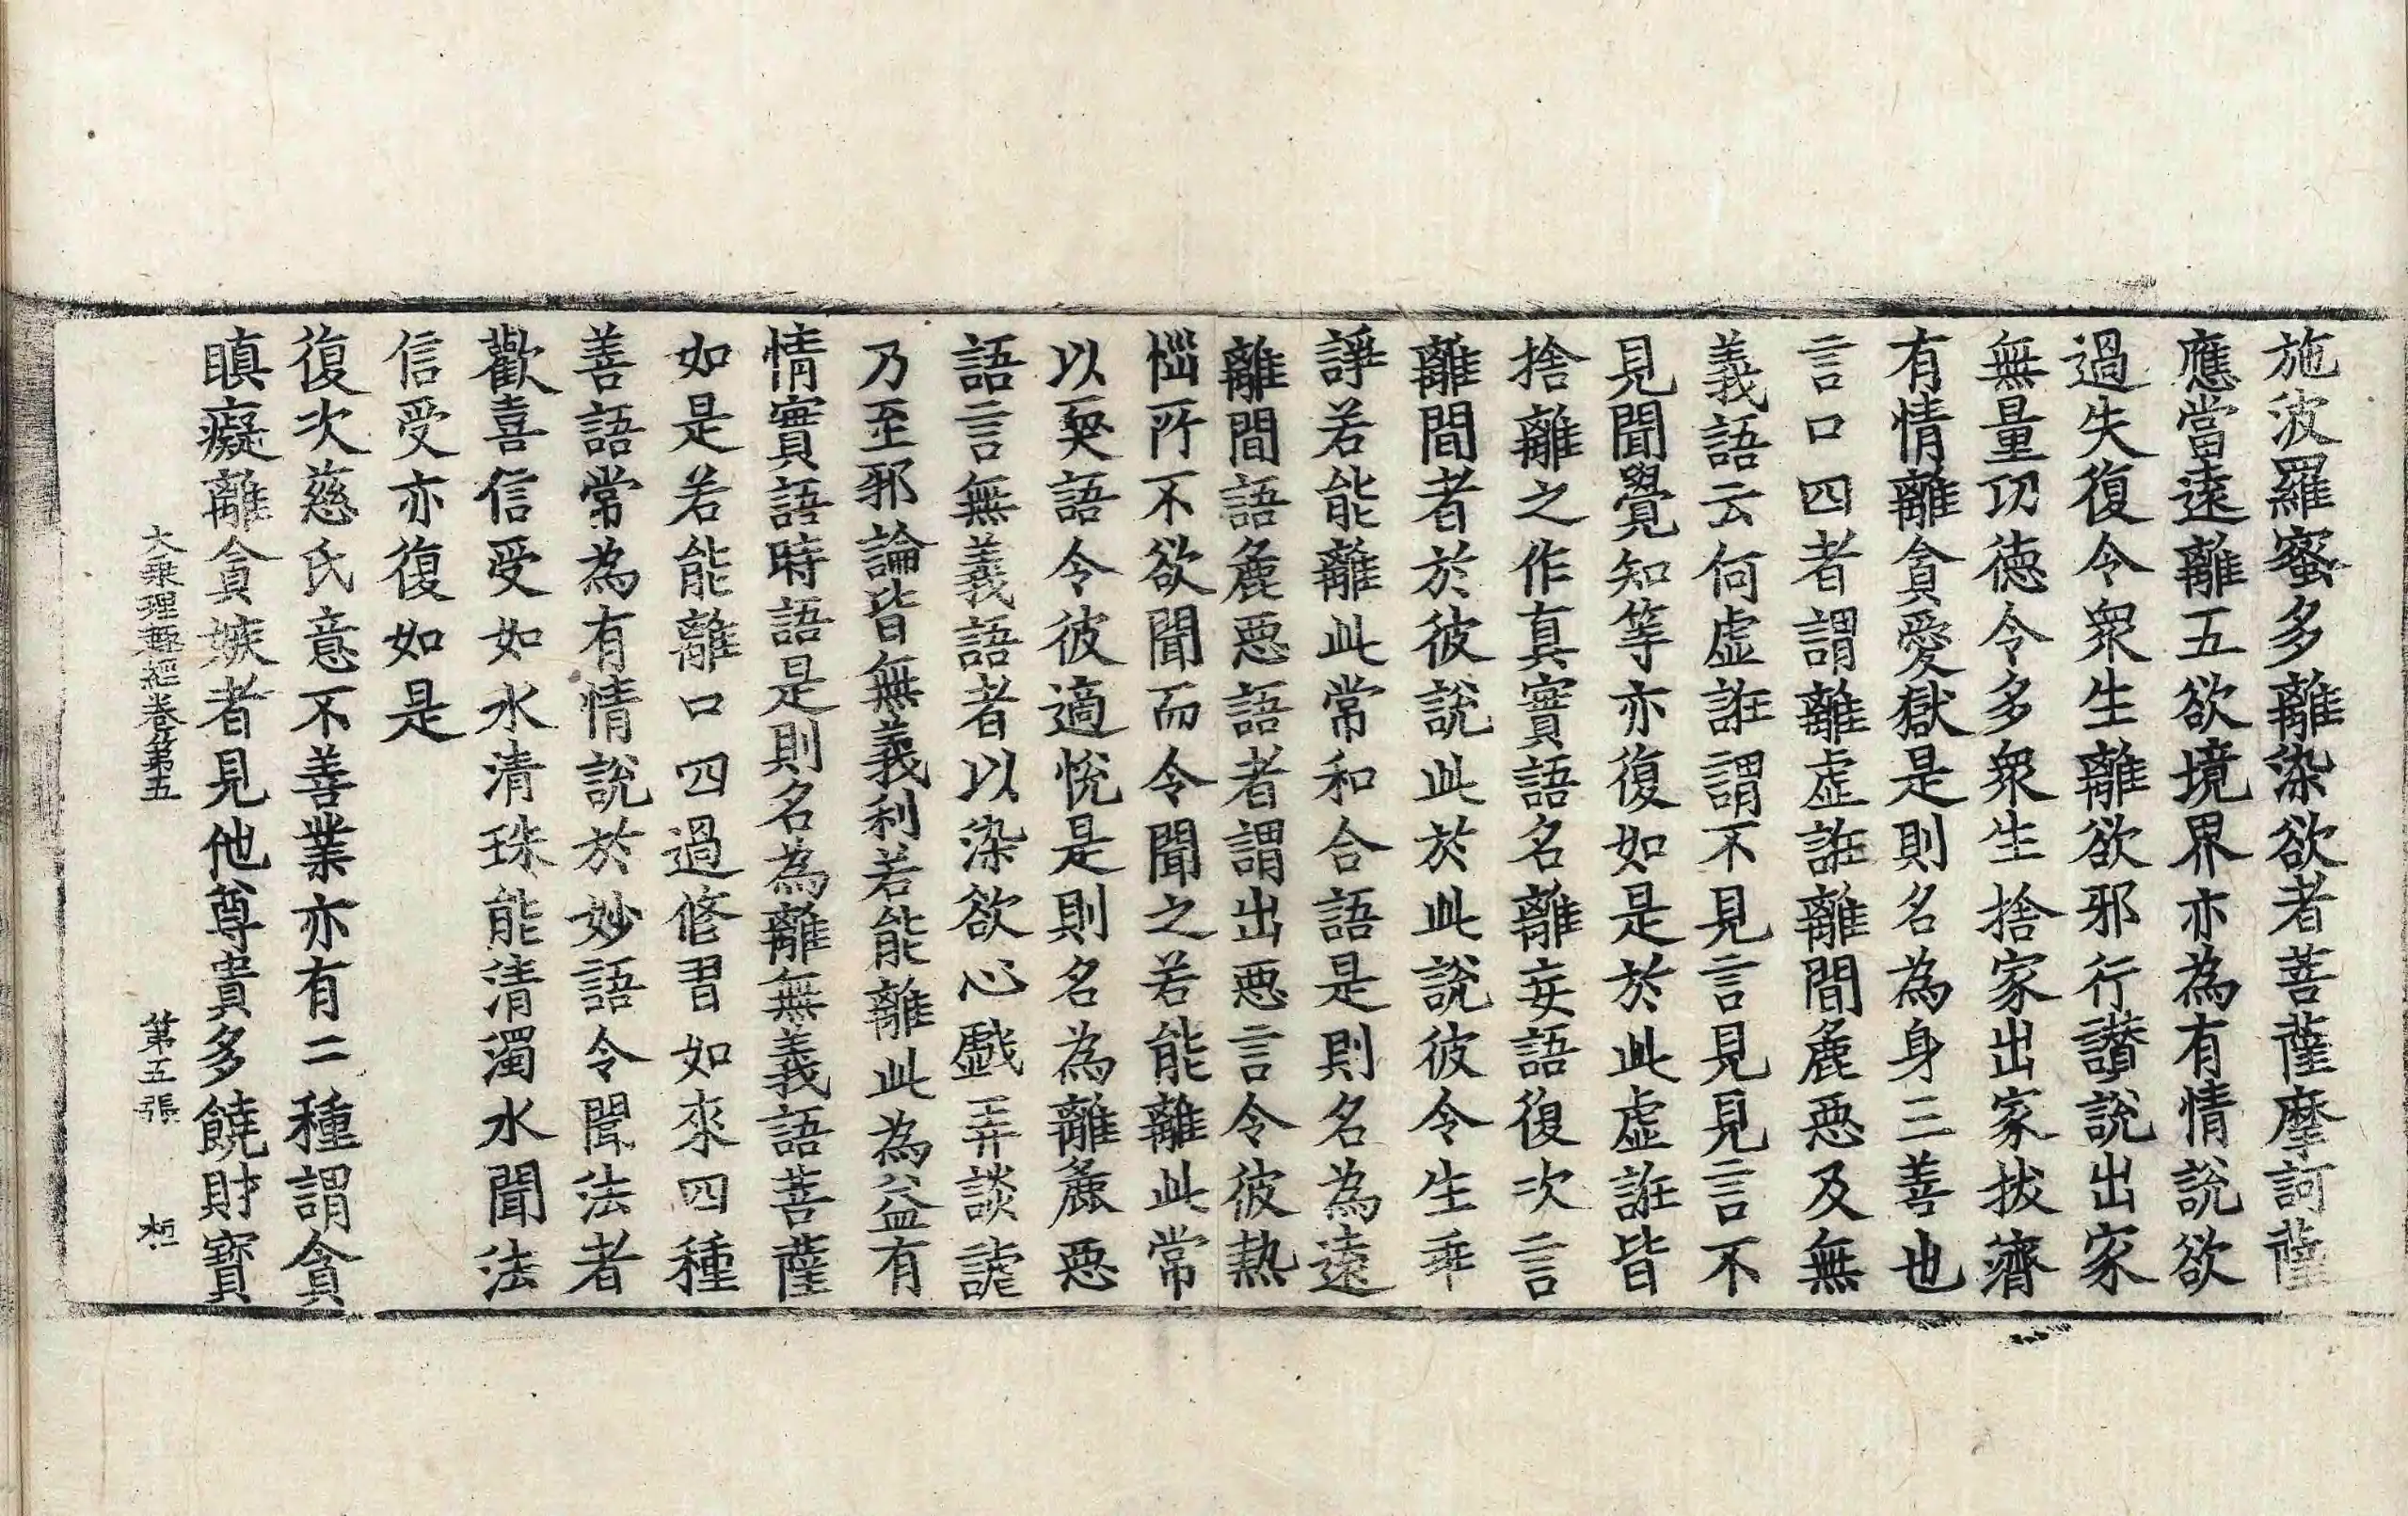 施波羅蜜多離染欲者菩薩摩訶薩
應當遠離五欲境界亦為有情說欲
過失復令衆生離欲邪行讃說出家
無量功徳令多衆生捨家出家拔濟
有情離貪愛獄是則名為身三善也
言口四者謂離虛誑離間麁惡及無
義語云何虛誑謂不見言見見言不
見聞覺知等亦復如是於此虛誑皆
捨離之作真實語名離妄語復次言
離間者於彼說此於此說彼令生乖
諍若能離此常和合語是則名為遠
離間語麁惡語者謂出惡言令彼熱
惱所不欲聞而令聞之若能離此常
以耎語令彼適悅是則名為離麁惡
語言無義語者以染欲心戲弄談謔
乃至邪論皆無義利若能離此為益有
情實語時語是則名為離無義語菩薩
如是若能離口四過修習如來四種
善語常為有情說於妙語令聞法者
歡喜信受如水清珠能清濁水聞法
信受亦復如是
復次慈氏意不善業亦有二種謂貪
瞋癡離貪嫉者見他尊貴多饒財寶
大乗理趣經卷第五 第五張 桓